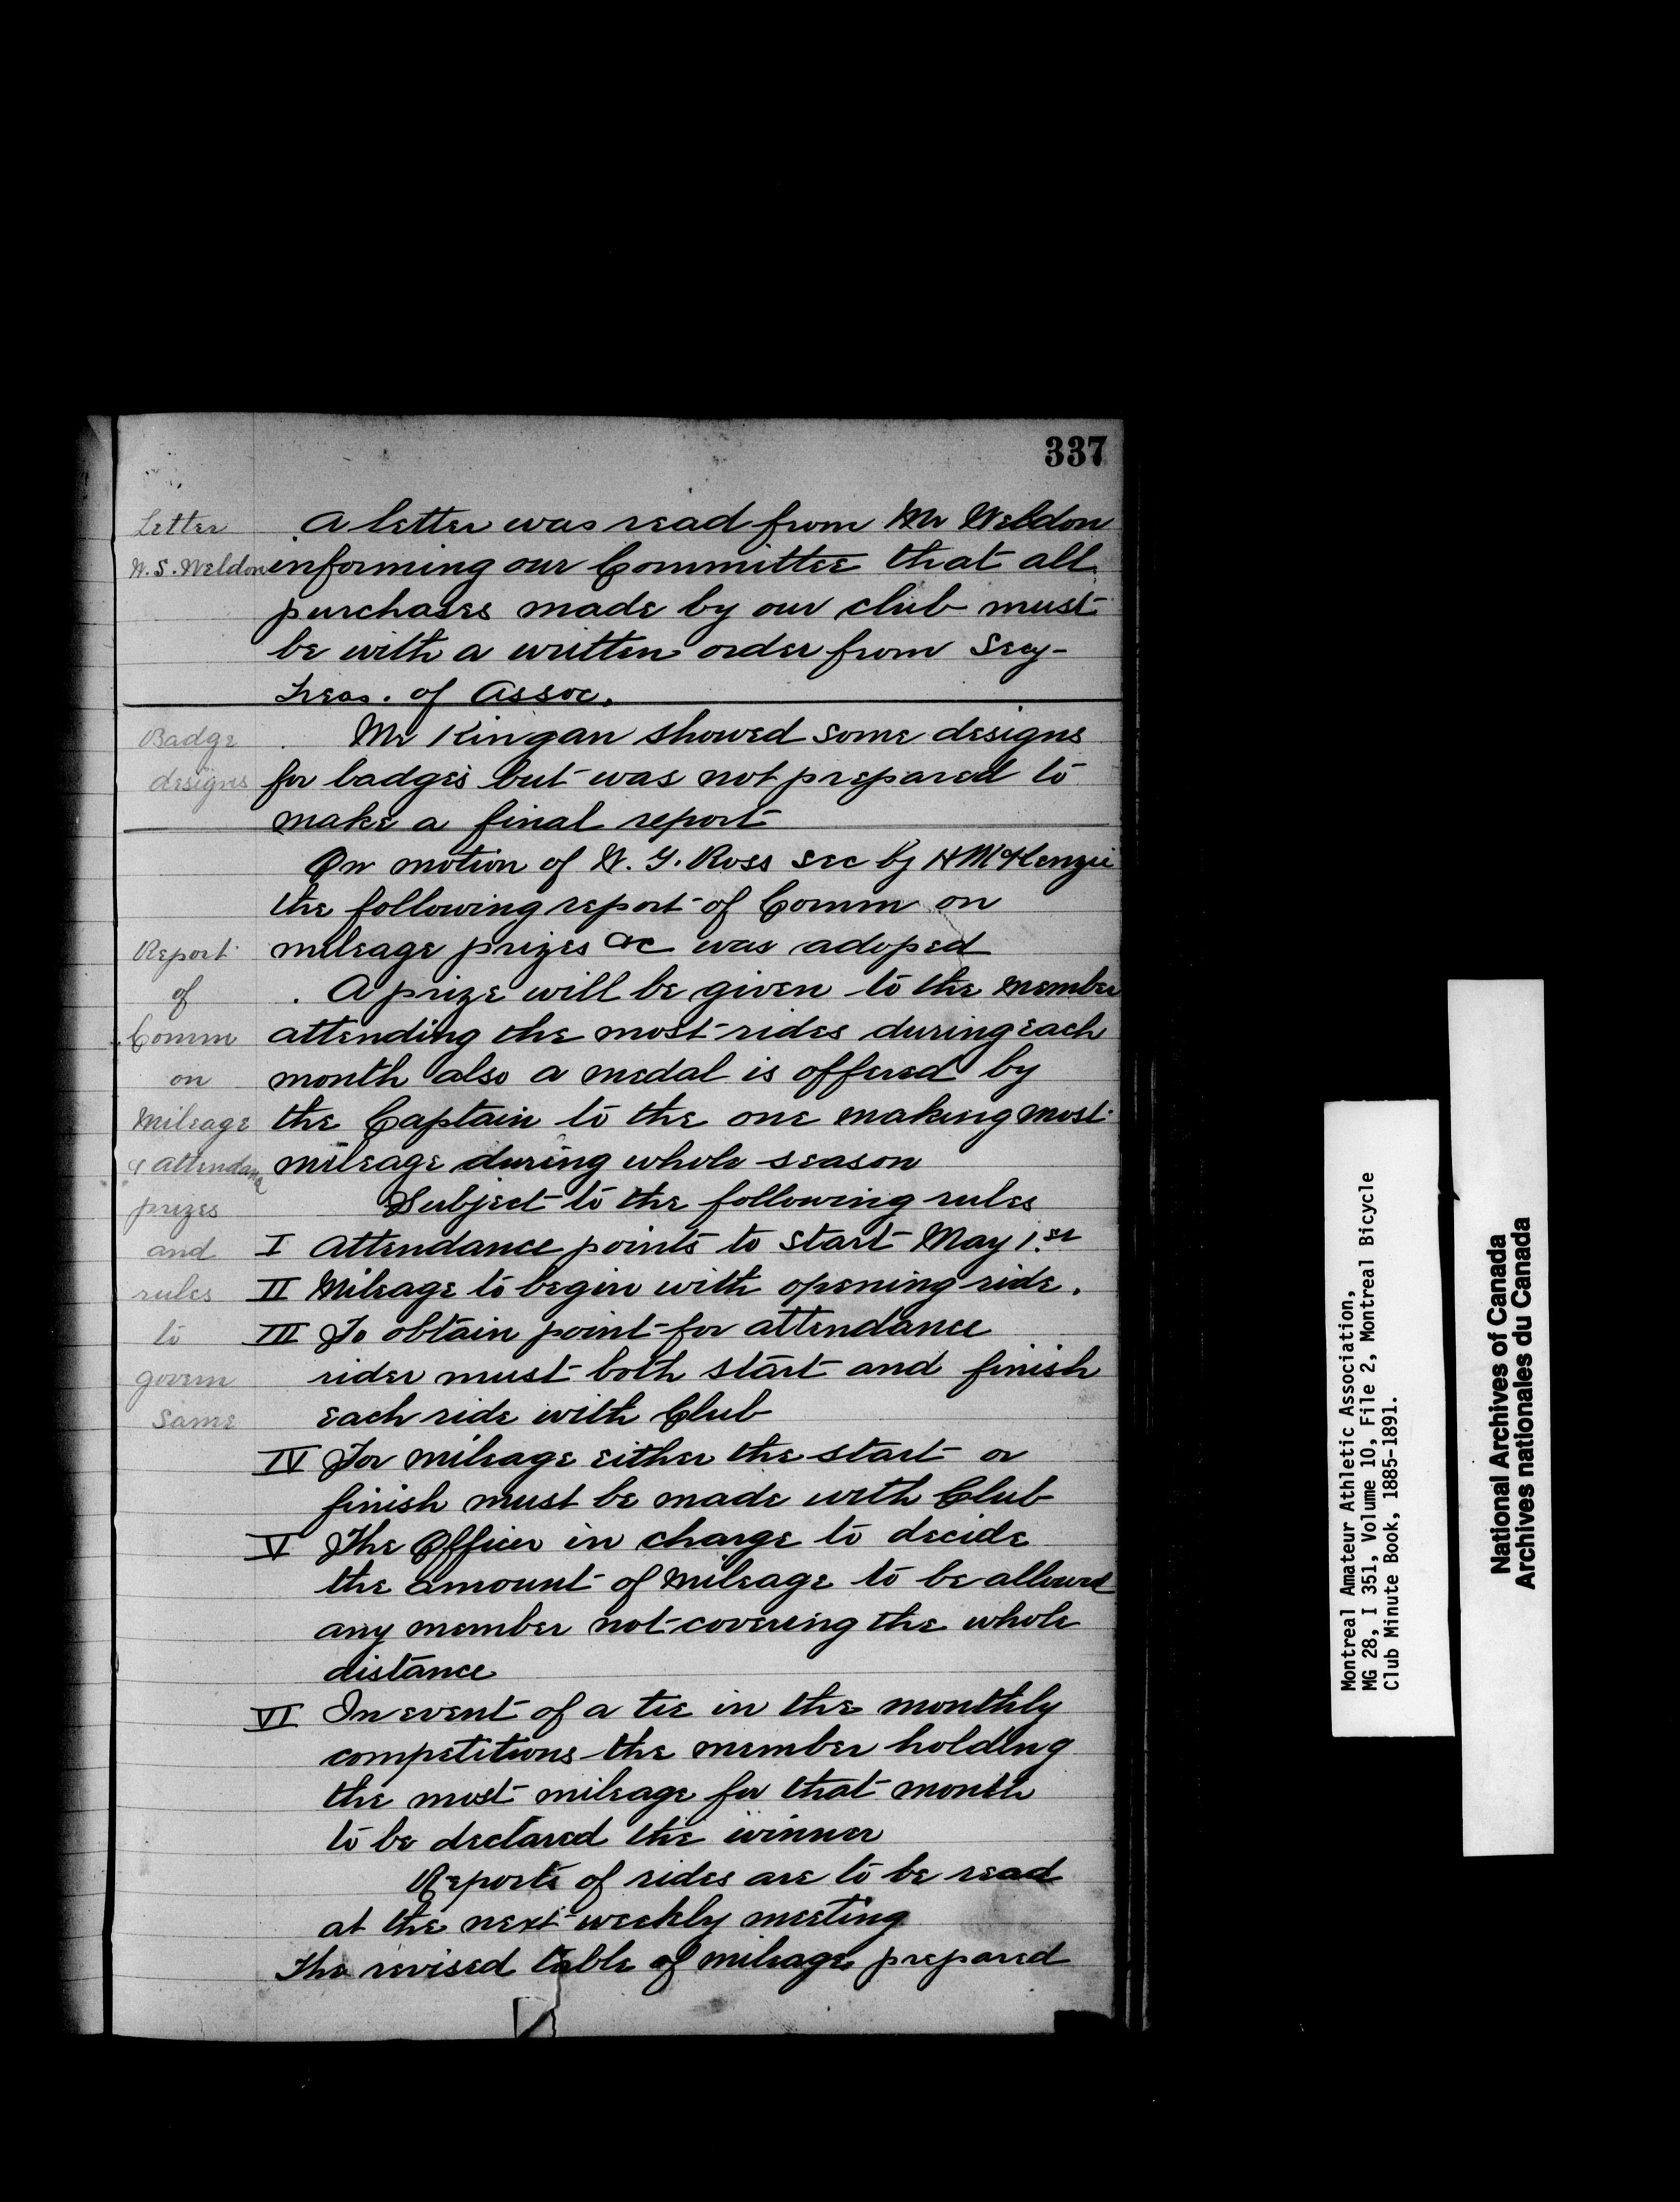 337
Letter
W. S. Weldon
A letter was read from Mr Weldon
enforming our Committee that all
purchases made by our club must
be with a written order from Secy-
Treas. of Assoc.
Badge
designs
Mr Kingan showed some designs
for badges but was not prepared to
make a final report
On motion of W. G. Ross sec by H McKenzie
the following report of Comm on
mileage prizes &c was adoped
Report
of
Comm
on
Mileage
& attendance
prizes
and
rules
to
govern
same
A prize will be given to the member
attending the most rides during each
month also a medal is offered by
the Captain to the one making most
mileage during whole season
Subject to the following rules
I Attendance points to start May 1.st
II Mileage to begin with opening ride.
III To obtain point for attendance
rider must both start and finish
each ride with Club
IV For mileage either the start or
finish must be made with Club
V The Officer in charge to decide
the amount of mileage to be allowed
any member not covering the whole
distance
VI In event of a tie in the monthly
competitions the member holding
the most mileage for that month
to be declared the winner
Reports of rides are to be read
at the next weekly meeting
The revised table of mileage prepared
Montreal Amateur Athletic Association,
MG 28, I 351, Volume 10, File 2, Montreal Bicycle
Club Minute Book, 1885-1891.
National Archives of Canada
Archives nationales du Canada